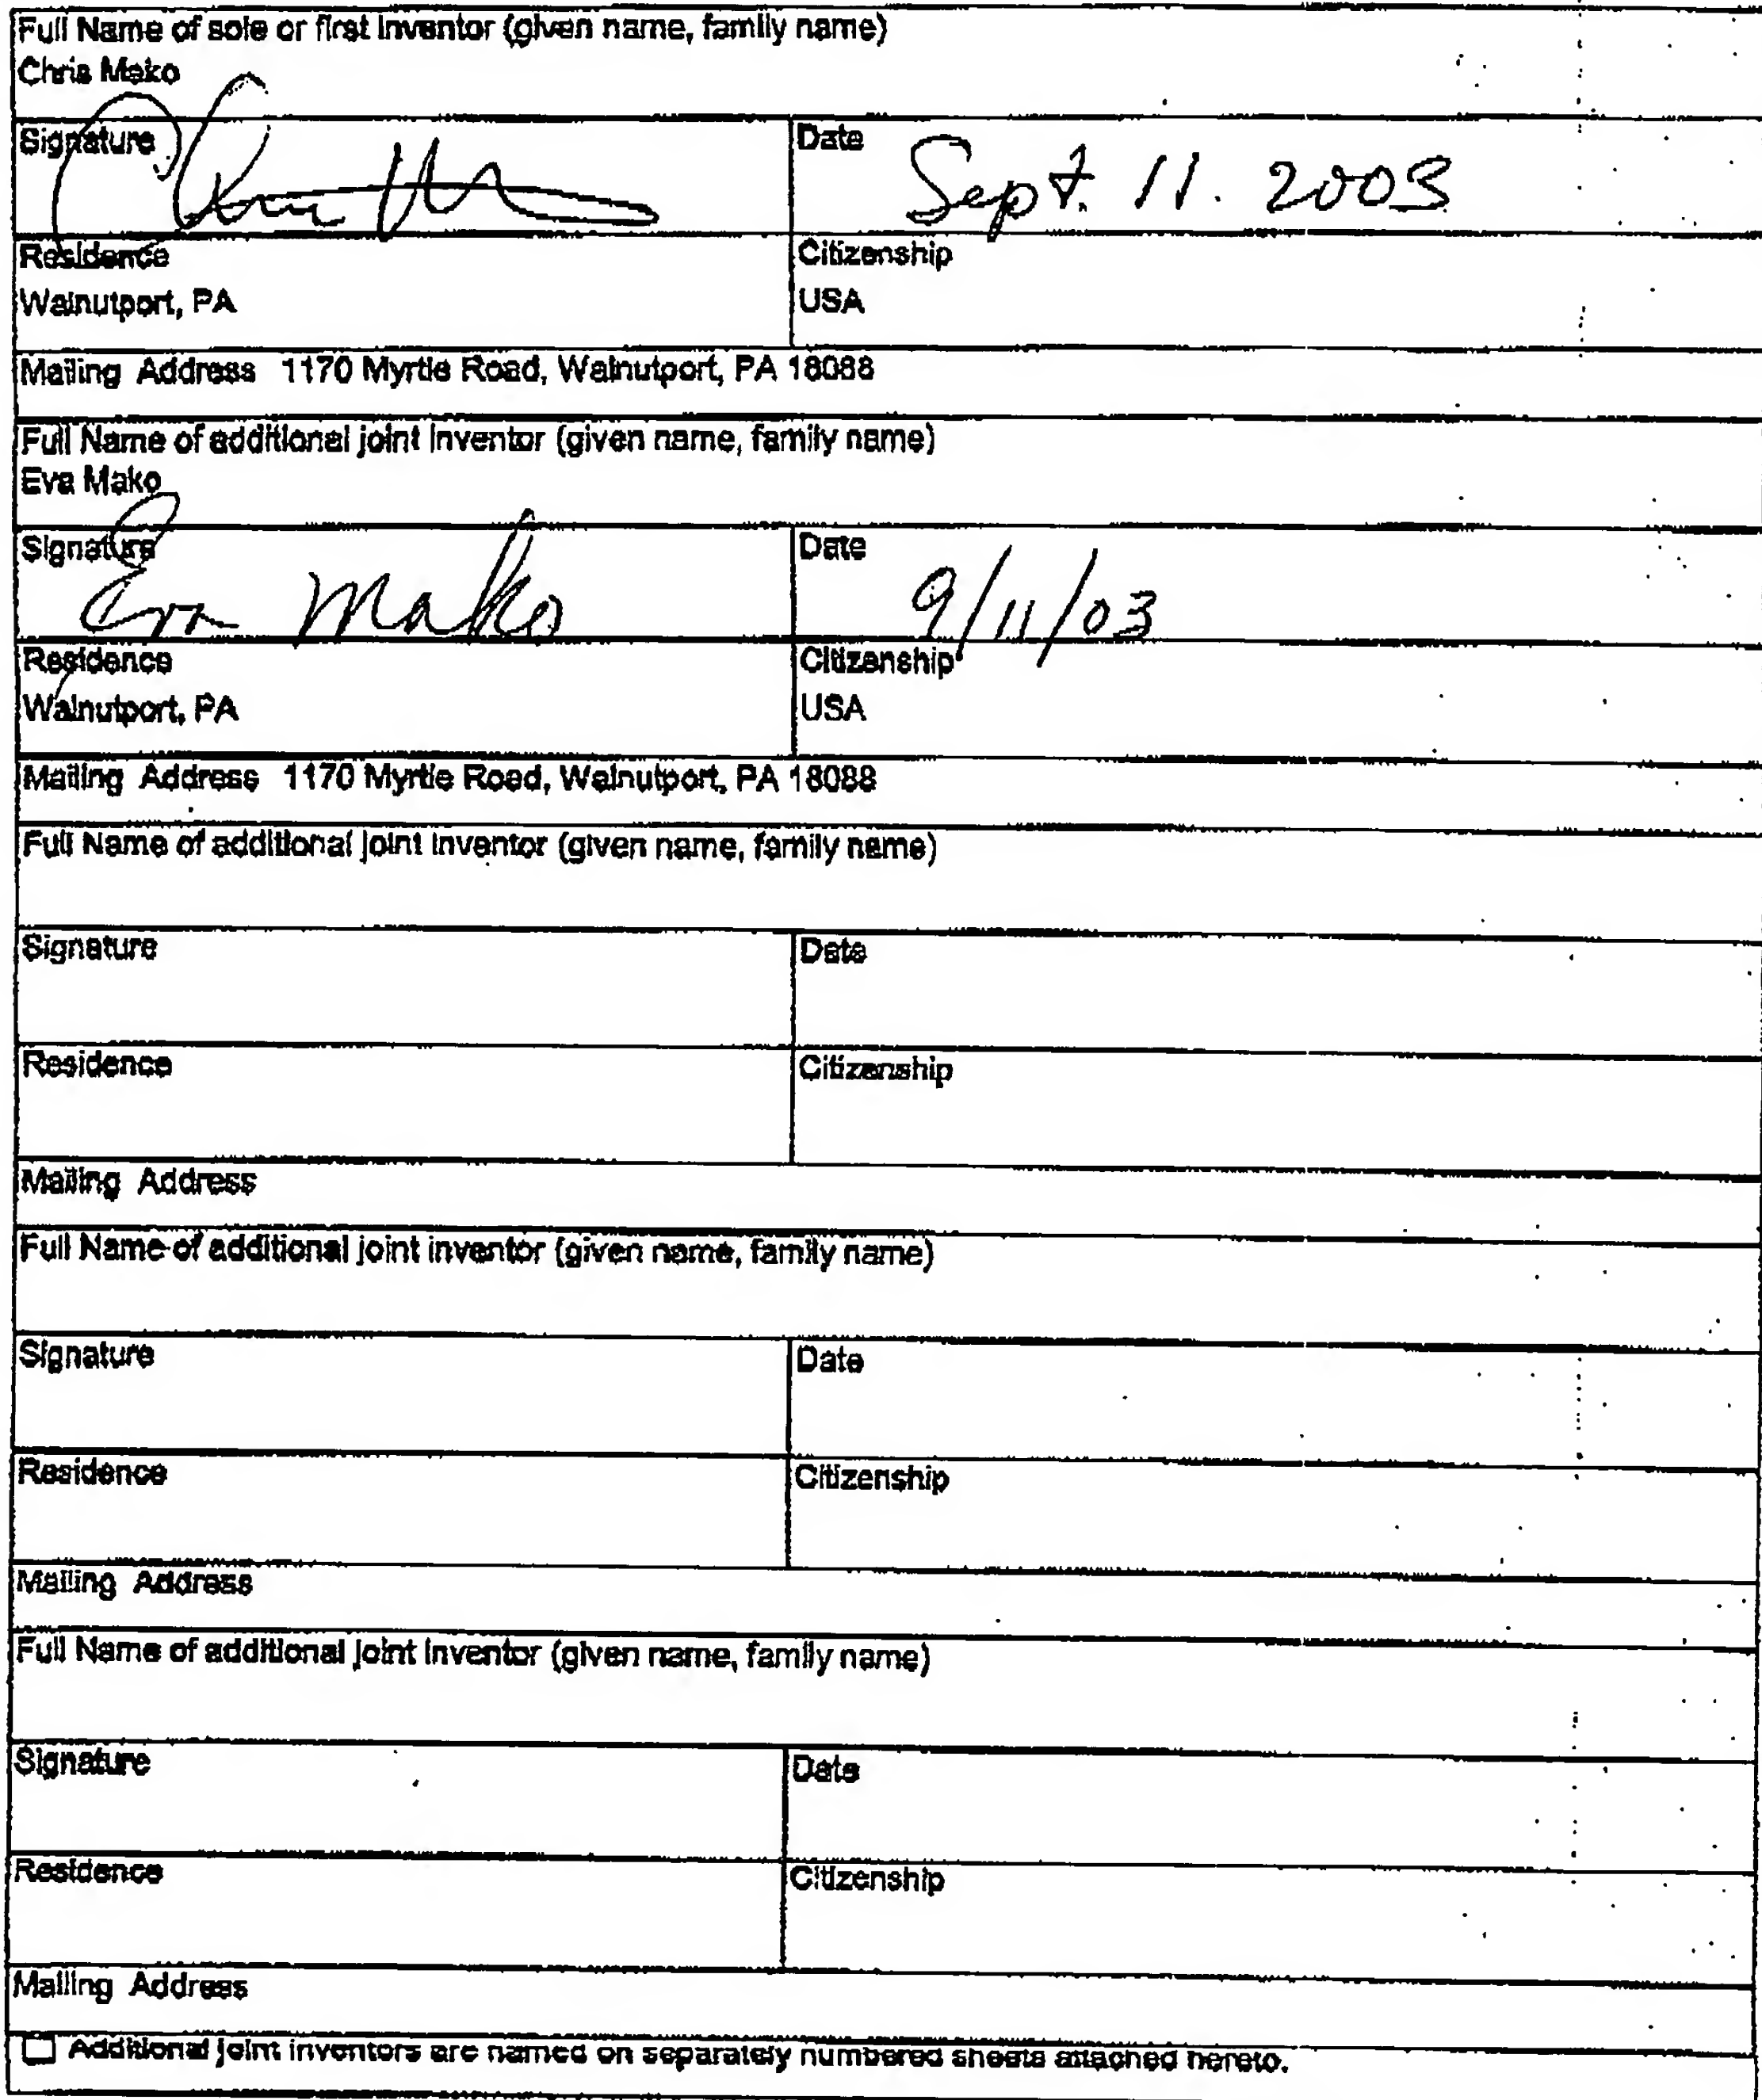 Full Name of sole or first inventor (given name, family name)
Chris Mako
Signature
Date Sept. 11. 2003
Residence
Citizenship
Walnutport, PA
USA
Mailing Address 1170 Myrtle Road, Walnutport, PA 18088
Full Name of additional joint inventor (given name, family name)
Eva Mako
Signature
Eva Mako
Date
9/11/03
Residence
Citizenship
Walnutport, PA
USA
Mailing Address 1170 Myrtle Road, Walnutport, PA 18088
Full Name of additional joint inventor (given name, family name)
Signature
Date
Residence
Citizenship
Mailing Address
Full Name of additional joint inventor (given name, family name)
Signature
Date
Residence
Citizenship
Mailing Address
Full Name of additional joint inventor (given name, family name)
Signature
Date
Residence
Citizenship
Mailing Address
Additional joint inventors are named on separately numbered sheets attached hereto.